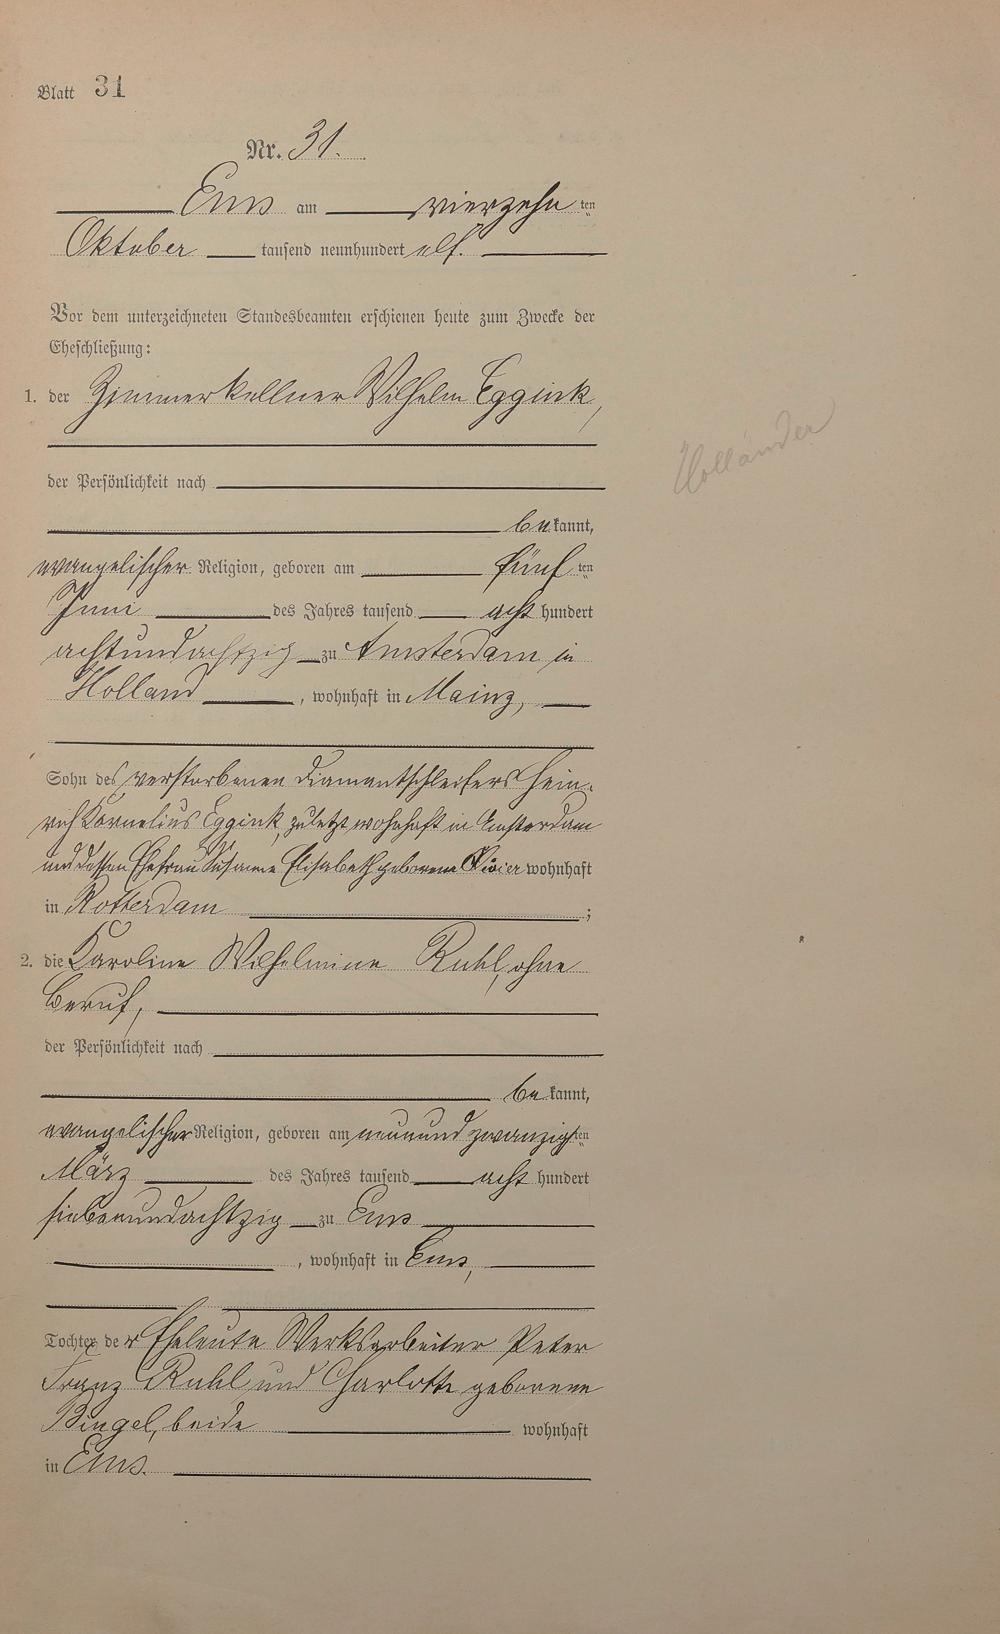 Blatt 31
Nr. 31.
Ems am vierzehnten
Oktober tausend neunhundert elf.
Vor dem unterzeichneten Standesbeamten erschienen heute zum Zwecke der
Eheschließung:
1. der Zimmerkellner Wilhelm Eggink,
Holländer
der Persönlichkeit nach
bekannt,
evangelischer Religion, geboren am fünften
Juni des Jahres tausend acht hundert
achtundachtzig zu Amsterdam in
Holland, wohnhaft in Mainz,
Sohn des verstorbenen Diamantschleifers Hein-
rich Kornelius Eggink, zuletzt wohnhaft in Amsterdam
und dessen Ehefrau Susanne Elisabeth geborene wohnhaft
in Rotterdam ;
2. die Karoline Wilhelmine Ruhl, ohne
Beruf,
der Persönlichkeit nach
bekannt,
evangelischer Religion, geboren am neunundzwanzigsten
März des Jahres tausend acht hundert
siebenundachtzig zu Ems
, wohnhaft in Ems,
Tochter der Eheleute Werksarbeiter Peter
Franz Ruhl und Charlotte geborene
Bingel, beide wohnhaft
in Ems.